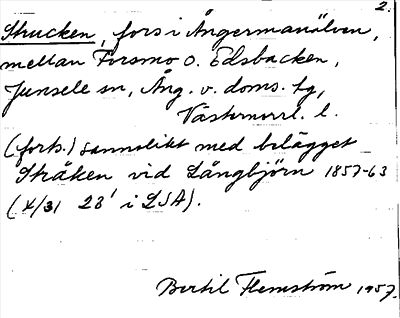 2.
Strucken, fors i Ångermanälven,
mellan Forsmo o. Edsbacken,
Junsele sn, Ång. v. doms. tg,
Västernorrl. l.
(forts.) sannolikt med belägget
Stråken vid Långbjörn 1857-63
(X/31 28' i LSA).
Bertil Flemström 1957.